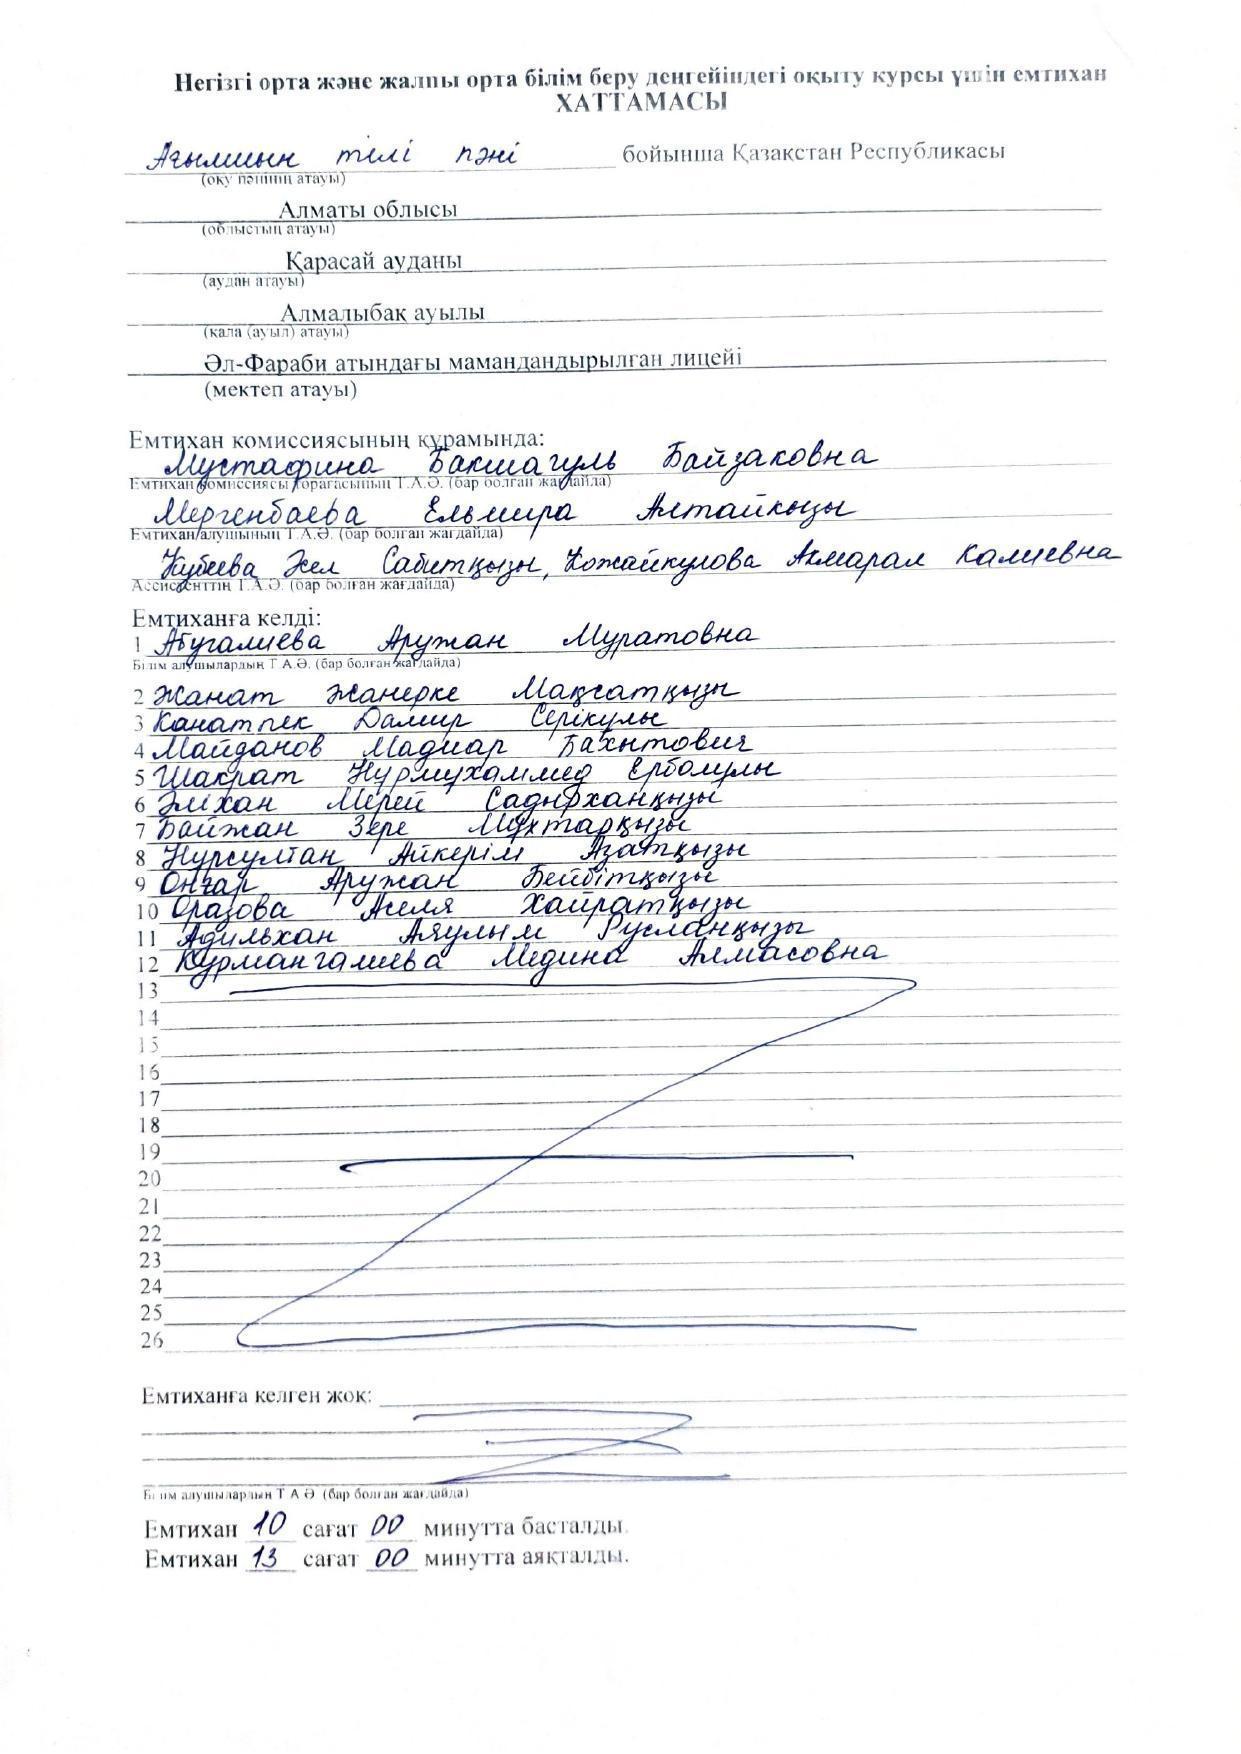 Негізгі орта және жалпы орта білім беру деңгейіндегі оқыту курсы үшін емтихан
ХАТТАМАСЫ
Ағылшын тілі пәні бойынша Қазақстан Республикасы
(оқу пәнінің атауы)
Алматы облысы
(облыстың атауы)
Қарасай ауданы
(аудан атауы)
Алмалыбақ ауылы
(қала (ауыл) атауы)
Әл-Фараби атындағы мамандандырылған лицейі
(мектеп атауы)
Емтихан комиссиясының құрамында:
Мустафина Бакшагуль Байзаковна
Емтихан комиссиясы төрағасының Т.А.Ә. (бар болған жағдайда)
Мергенбаева Ельмира Алтайқызы
Емтихан алушының Т.А.Ә. (бар болған жағдайда)
Кубеева Әсел Сабитқызы, Кожайкулова Акмарал Калиевна
Ассистенттің Т.А.Ә. (бар болған жағдайда)
Емтиханға келді:
1 Абугалиева Аружан Муратовна
Білім алушылардың Т.А.Ә. (бар болған жағдайда)
2 Жанат Жанерке Мақсатқызы
3 Канатпек Дамир Серікұлы
4 Майданов Мадиар Бахытович
5 Шакрат Нурмухаммед Ерболұлы
6 Әліхан Мерей Садырханқызы
7 Байжан Зере Мұхтарқызы
8 Нурсултан Айкерім Азатқызы
9 Оңғар Аружан Бейбітқызы
10 Оразова Аселя Хайратқызы
11 Адильхан Аяулым Русланқызы
12 Курмангалиева Медина Алмасовна
13
14
15
16
17
18
19
20
21
22
23
24
25
26
Емтиханға келген жоқ:
Білім алушылардың Т.А.Ә. (бар болған жағдайда)
Емтихан 10 сағат 00 минутта басталды.
Емтихан 13 сағат 00 минутта аяқталды.